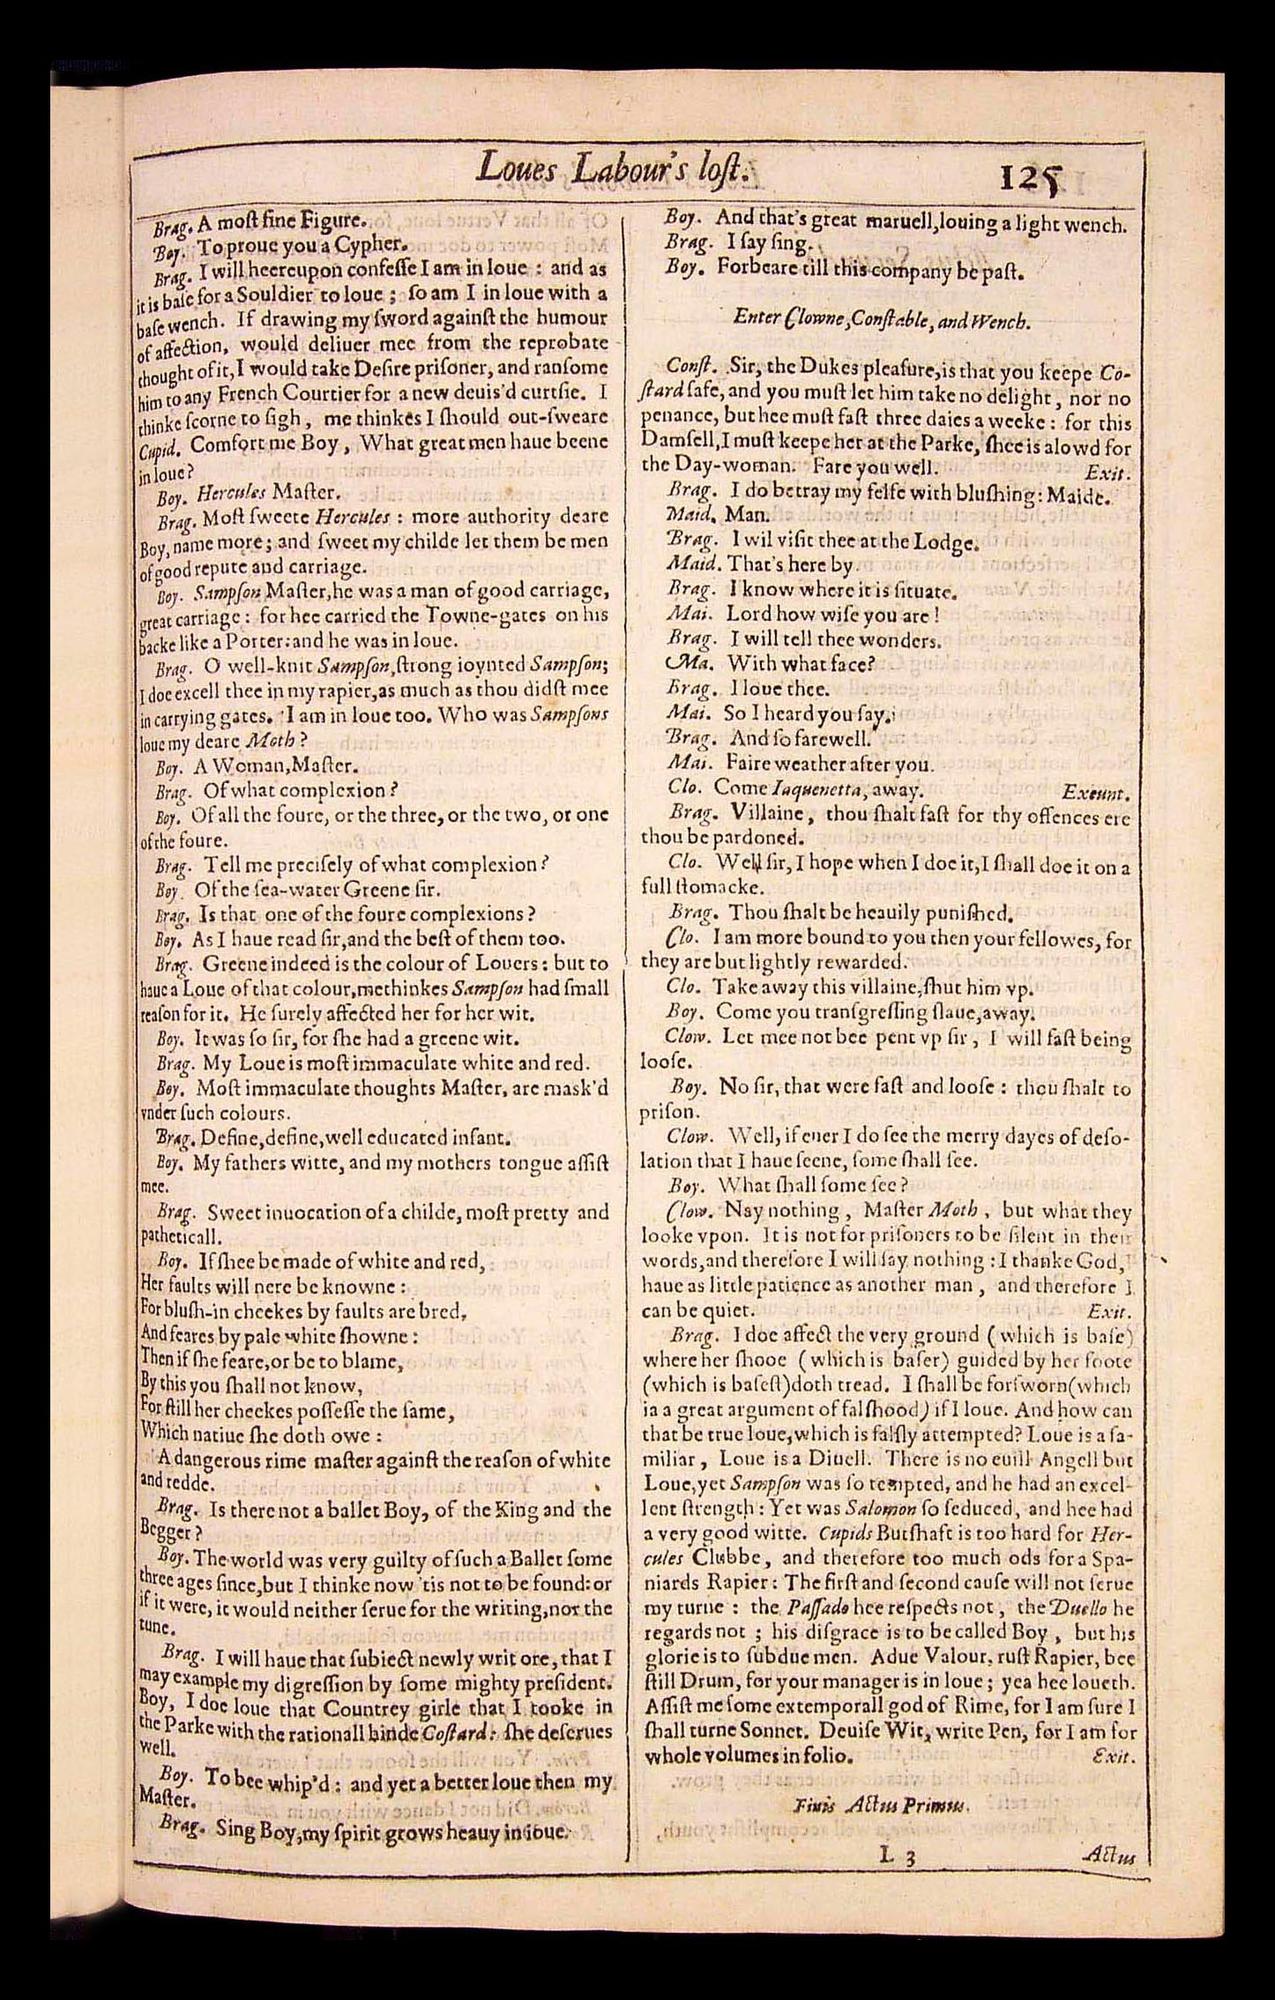 Loues Labour's lost.
125
Brag. A most fine Figure.
Boy. To proue you a Cypher.
Brag. I will heereupon confesse I am in loue : and as
it is base for a Souldier to loue ; so am I in loue with a
base wench. If drawing my sword against the humour
of affection, would deliuer mee from the reprobate
thought of it, I would take Desire prisoner, and ransome
him to any French Courtier for a new deuis'd curtsie. I
thinke scorne to sigh , me thinkes I should out-sweare
Cupid. Comfort me Boy , What great men haue beene
in loue?
Boy. Hercules Master.
Brag. Most sweete Hercules : more authority deare
Boy, name more; and sweet my childe let them be men
of good repute and carriage.
Boy. Sampson Master, he was a man of good carriage,
great carriage : for hee carried the Towne-gates on his
backe like a Porter: and he was in loue.
Brag. O well-knit Sampson, strong ioynted Sampson;
I doe excell thee in my rapier, as much as thou didst mee
in carrying gates. I am in loue too. Who was Sampsons
loue my deare Moth ?
Boy. A Woman, Master.
Brag. Of what complexion ?
Boy. Of all the foure, or the three, or the two, or one
of the foure.
Brag. Tell me precisely of what complexion ?
Boy. Of the sea-water Greene sir.
Brag. Is that one of the foure complexions ?
Boy. As I haue read sir, and the best of them too.
Brag. Greene indeed is the colour of Louers : but to
haue a Loue of that colour, methinkes Sampson had small
reason for it. He surely affected her for her wit.
Boy. It was so sir, for she had a greene wit.
Brag. My Loue is most immaculate white and red.
Boy. Most immaculate thoughts Master, are mask'd
vnder such colours.
Brag. Define, define, well educated infant.
Boy. My fathers witte, and my mothers tongue assist
mee.
Brag. Sweet inuocation of a childe, most pretty and
patheticall.
Boy. If shee be made of white and red,
Her faults will nere be knowne :
For blush-in cheekes by faults are bred,
And feares by pale white showne :
Then if she feare, or be to blame,
By this you shall not know,
For still her cheekes possesse the same,
Which natiue she doth owe :
A dangerous rime master against the reason of white
and redde.
Brag. Is there not a ballet Boy, of the King and the
Begger ?
Boy. The world was very guilty of such a Ballet some
three ages since, but I thinke now 'tis not to be found: or
if it were, it would neither serue for the writing, nor the
tune.
Brag. I will haue that subiect newly writ ore, that I
may example my digression by some mighty president.
Boy, I doe loue that Countrey girle that I tooke in
the Parke with the rationall hinde Costard: she deserues
well.
Boy. To bee whip'd : and yet a better loue then my
Master.
Brag. Sing Boy, my spirit grows heauy in loue.
Boy. And that's great maruell, louing a light wench.
Brag. I say sing.
Boy. Forbeare till this company be past.
Enter Clowne, Constable, and Wench.
Const. Sir, the Dukes pleasure, is that you keepe Co-
stard safe, and you must let him take no delight, nor no
penance, but hee must fast three daies a weeke : for this
Damsell, I must keepe her at the Parke, shee is alowd for
the Day-woman. Fare you well. Exit.
Brag. I do betray my selfe with blushing : Maide.
Maid. Man.
Brag. I wil visit thee at the Lodge.
Maid. That's here by.
Brag. I know where it is situate.
Mai. Lord how wise you are !
Brag. I will tell thee wonders.
Ma. With what face?
Brag. I loue thee.
Mai. So I heard you say.
Brag. And so farewell.
Mai. Faire weather after you.
Clo. Come Iaquenetta, away. Exeunt.
Brag. Villaine, thou shalt fast for thy offences ere
thou be pardoned.
Clo. Well sir, I hope when I doe it, I shall doe it on a
full stomacke.
Brag. Thou shalt be heauily punished.
Clo. I am more bound to you then your fellowes, for
they are but lightly rewarded.
Clo. Take away this villaine, shut him vp.
Boy. Come you transgressing slaue, away.
Clow. Let mee not bee pent vp sir, I will fast being
loose.
Boy. No sir, that were fast and loose : thou shalt to
prison.
Clow. Well, if euer I do see the merry dayes of deso-
lation that I haue seene, some shall see.
Boy. What shall some see ?
Clow. Nay nothing , Master Moth , but what they
looke vpon. It is not for prisoners to be silent in their
words, and therefore I will say nothing : I thanke God, I
haue as little patience as another man , and therefore I
can be quiet. Exit.
Brag. I doe affect the very ground ( which is base)
where her shooe ( which is baser) guided by her foote
(which is basest) doth tread. I shall be forsworn (which
ia a great argument of falshood) if I loue. And how can
that be true loue, which is falsly attempted? Loue is a fa-
miliar, Loue is a Diuell. There is no euill Angell but
Loue, yet Sampson was so tempted, and he had an excel-
lent strength : Yet was Salomon so seduced, and hee had
a very good witte. Cupids Butshaft is too hard for Her-
cules Clubbe, and therefore too much ods for a Spa-
niards Rapier : The first and second cause will not serue
my turne : the Passado hee respects not, the Duello he
regards not ; his disgrace is to be called Boy , but his
glorie is to subdue men. Adue Valour, rust Rapier, bee
still Drum, for your manager is in loue ; yea hee loueth.
Assist me some extemporall god of Rime, for I am sure I
shall turne Sonnet. Deuise Wit, write Pen, for I am for
whole volumes in folio. Exit.
Finis Actus Primus.
L 3
Actus